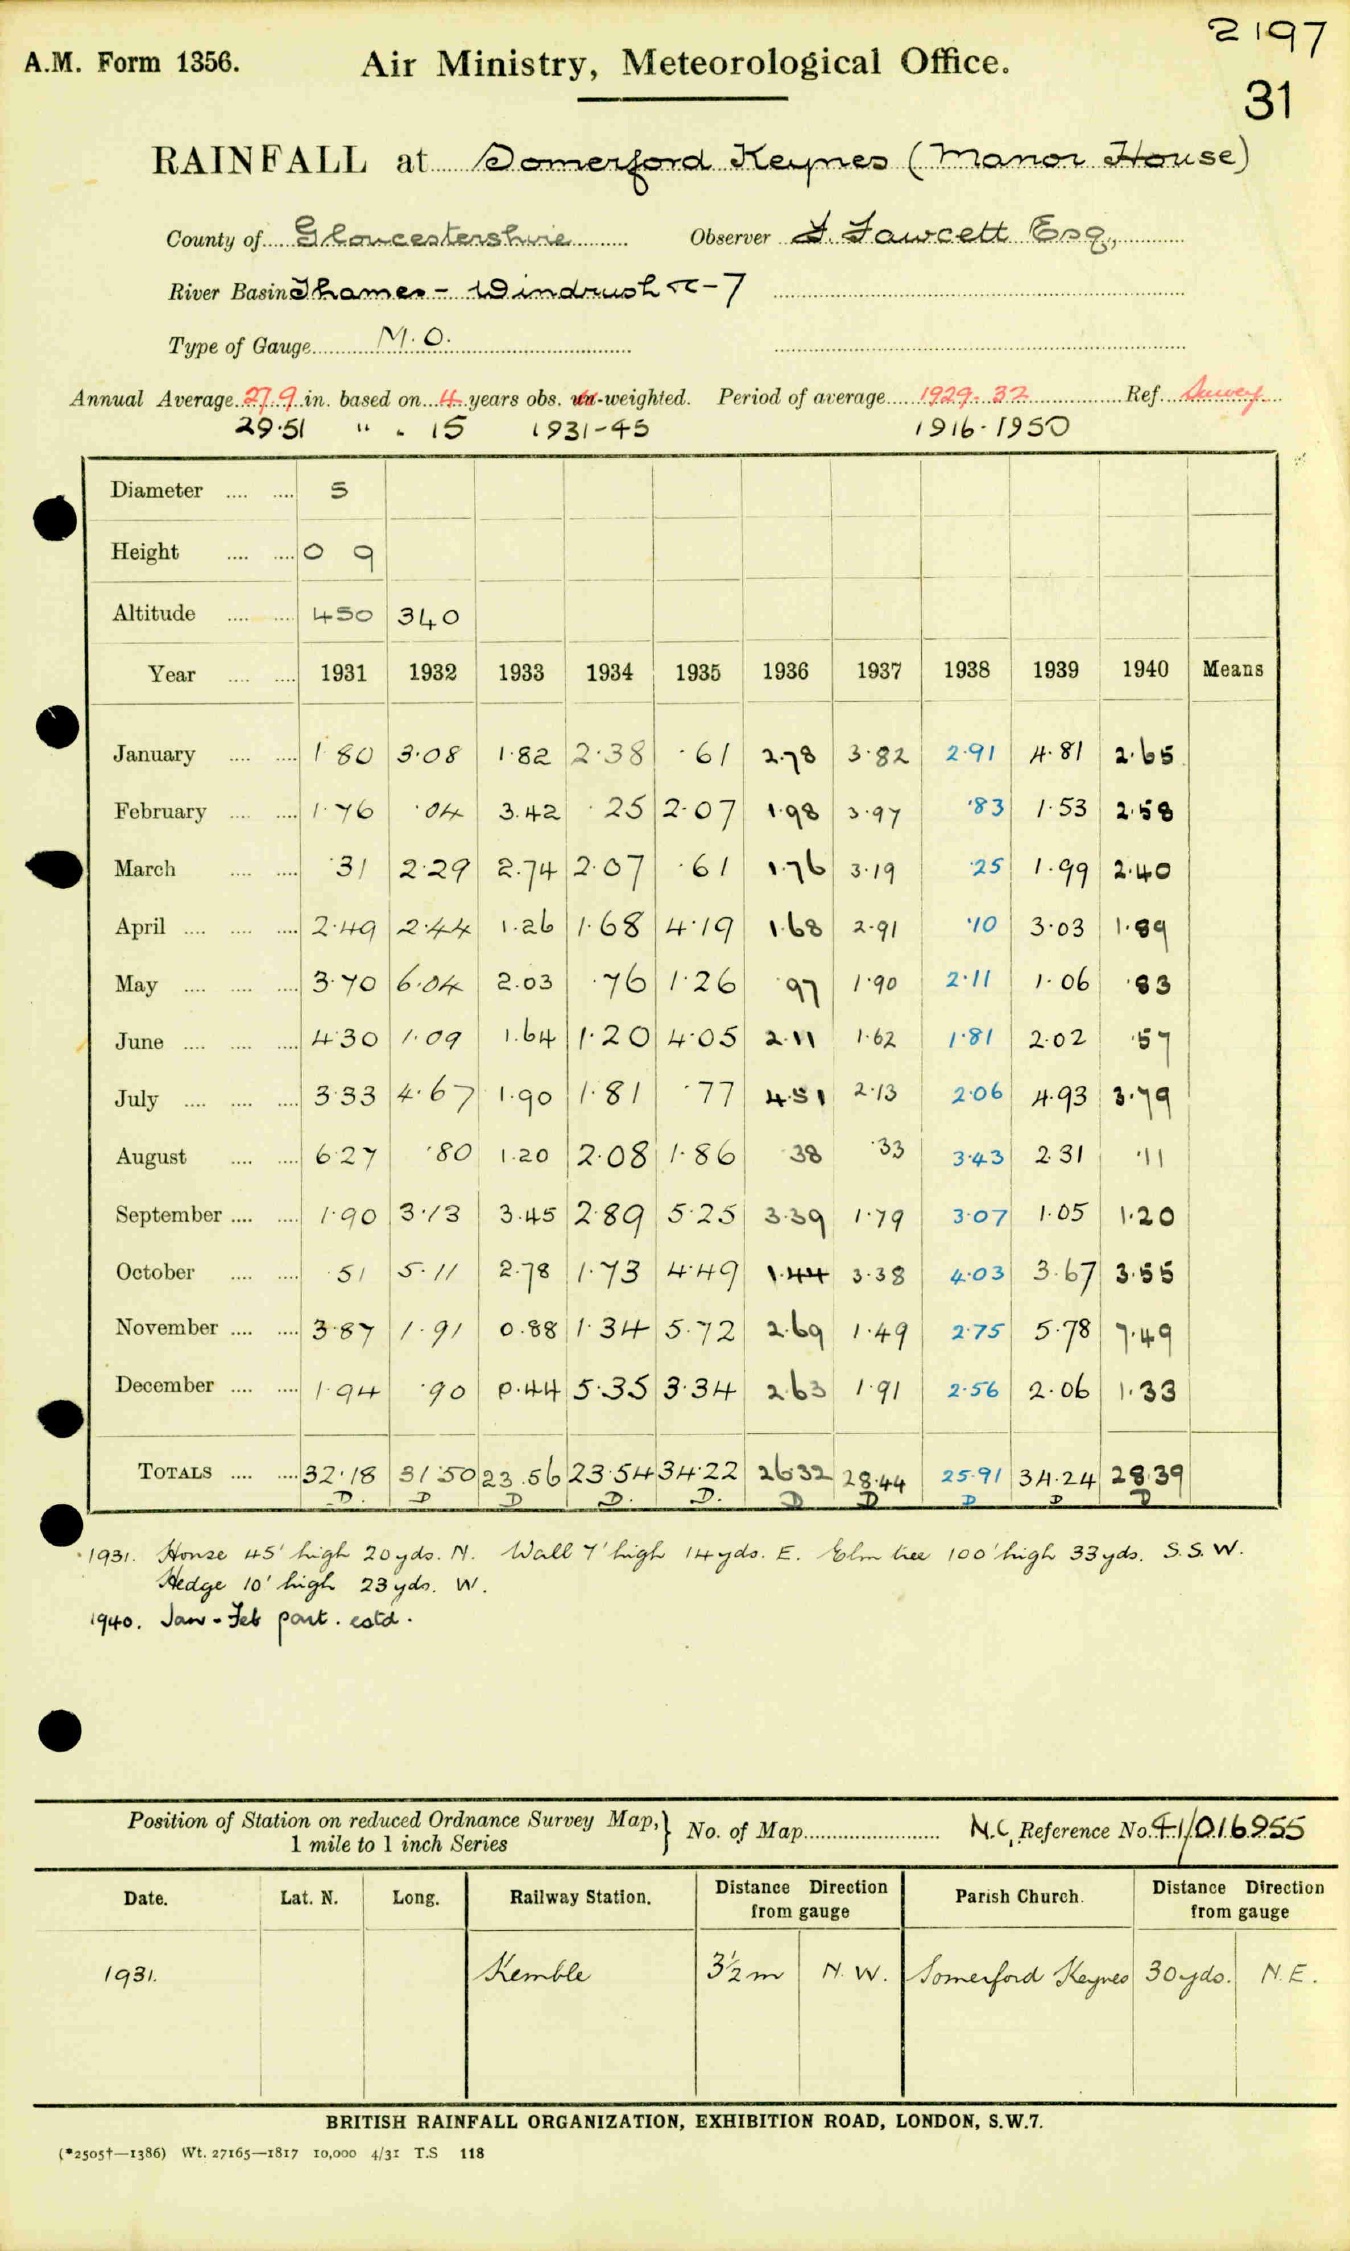 2197
A.M. Form 1356. Air Ministry, Meteorological Office.
31
RAINFALL at Somerford Keynes (Manor House)
County of Gloucestershire Observer F. Fawcett Esq.,
River Basin Thames - Windrush &c - 7
Type of Gauge M.O.
Annual Average 27.9 in. based on 4 years obs. un-weighted. Period of average 1929-32 Ref.
29.51 " . 15 1931-45 1916-1950
Diameter .... .... 5
Height .... .... 0 9
Altitude .... .... 450 340
Year .... .... 1931 1932 1933 1934 1935 1936 1937 1938 1939 1940 Means
January .... .... 1.80 3.08 1.82 2.38 .61 2.78 3.82 2.91 4.81 2.65
February .... .... 1.76 .04 3.42 .25 2.07 1.98 3.97 .83 1.53 2.58
March .... .... .31 2.29 2.74 2.07 .61 1.76 3.19 .25 1.99 2.40
April .... .... .... 2.49 2.44 1.26 1.68 4.19 1.68 2.91 .10 3.03 1.89
May .... .... .... 3.70 6.04 2.03 .76 1.26 .97 1.90 2.11 1.06 .83
June .... .... .... 4.30 1.09 1.64 1.20 4.05 2.11 1.62 1.81 2.02 .57
July .... .... .... 3.33 4.67 1.90 1.81 .77 4.51 2.13 2.06 4.93 3.79
August .... .... 6.27 .80 1.20 2.08 1.86 .38 .33 3.43 2.31 .11
September .... .... 1.90 3.13 3.45 2.89 5.25 3.39 1.79 3.07 1.05 1.20
October .... .... .51 5.11 2.78 1.73 4.49 1.44 3.38 4.03 3.67 3.55
November .... .... 3.87 1.91 0.88 1.34 5.72 2.69 1.49 2.75 5.78 7.49
December .... .... 1.94 .90 0.44 5.35 3.34 2.63 1.91 2.56 2.06 1.33
TOTALS .... .... 32.18 31.50 23.56 23.54 34.22 26.32 28.44 25.91 34.24 28.39
D. D D D. D. D D D D D
1931. House 45' high 20 yds. N. Wall 7' high 14 yds. E. Elm tree 100' high 33 yds. S.S.W.
Hedge 10' high 23 yds. W.
1940. Jan - Feb part. estd.
Position of Station on reduced Ordnance Survey Map, } No. of Map N.G. Reference No. 41/016955
1 mile to 1 inch Series
Date. Lat. N. Long. Railway Station. Distance Direction from gauge Parish Church. Distance Direction from gauge
1931. Kemble 3½ m N.W. Somerford Keynes 30 yds. N.E.
BRITISH RAINFALL ORGANIZATION, EXHIBITION ROAD, LONDON, S.W.7.
(*2505†—1386) Wt. 27165—1817 10,000 4/31 T.S 118